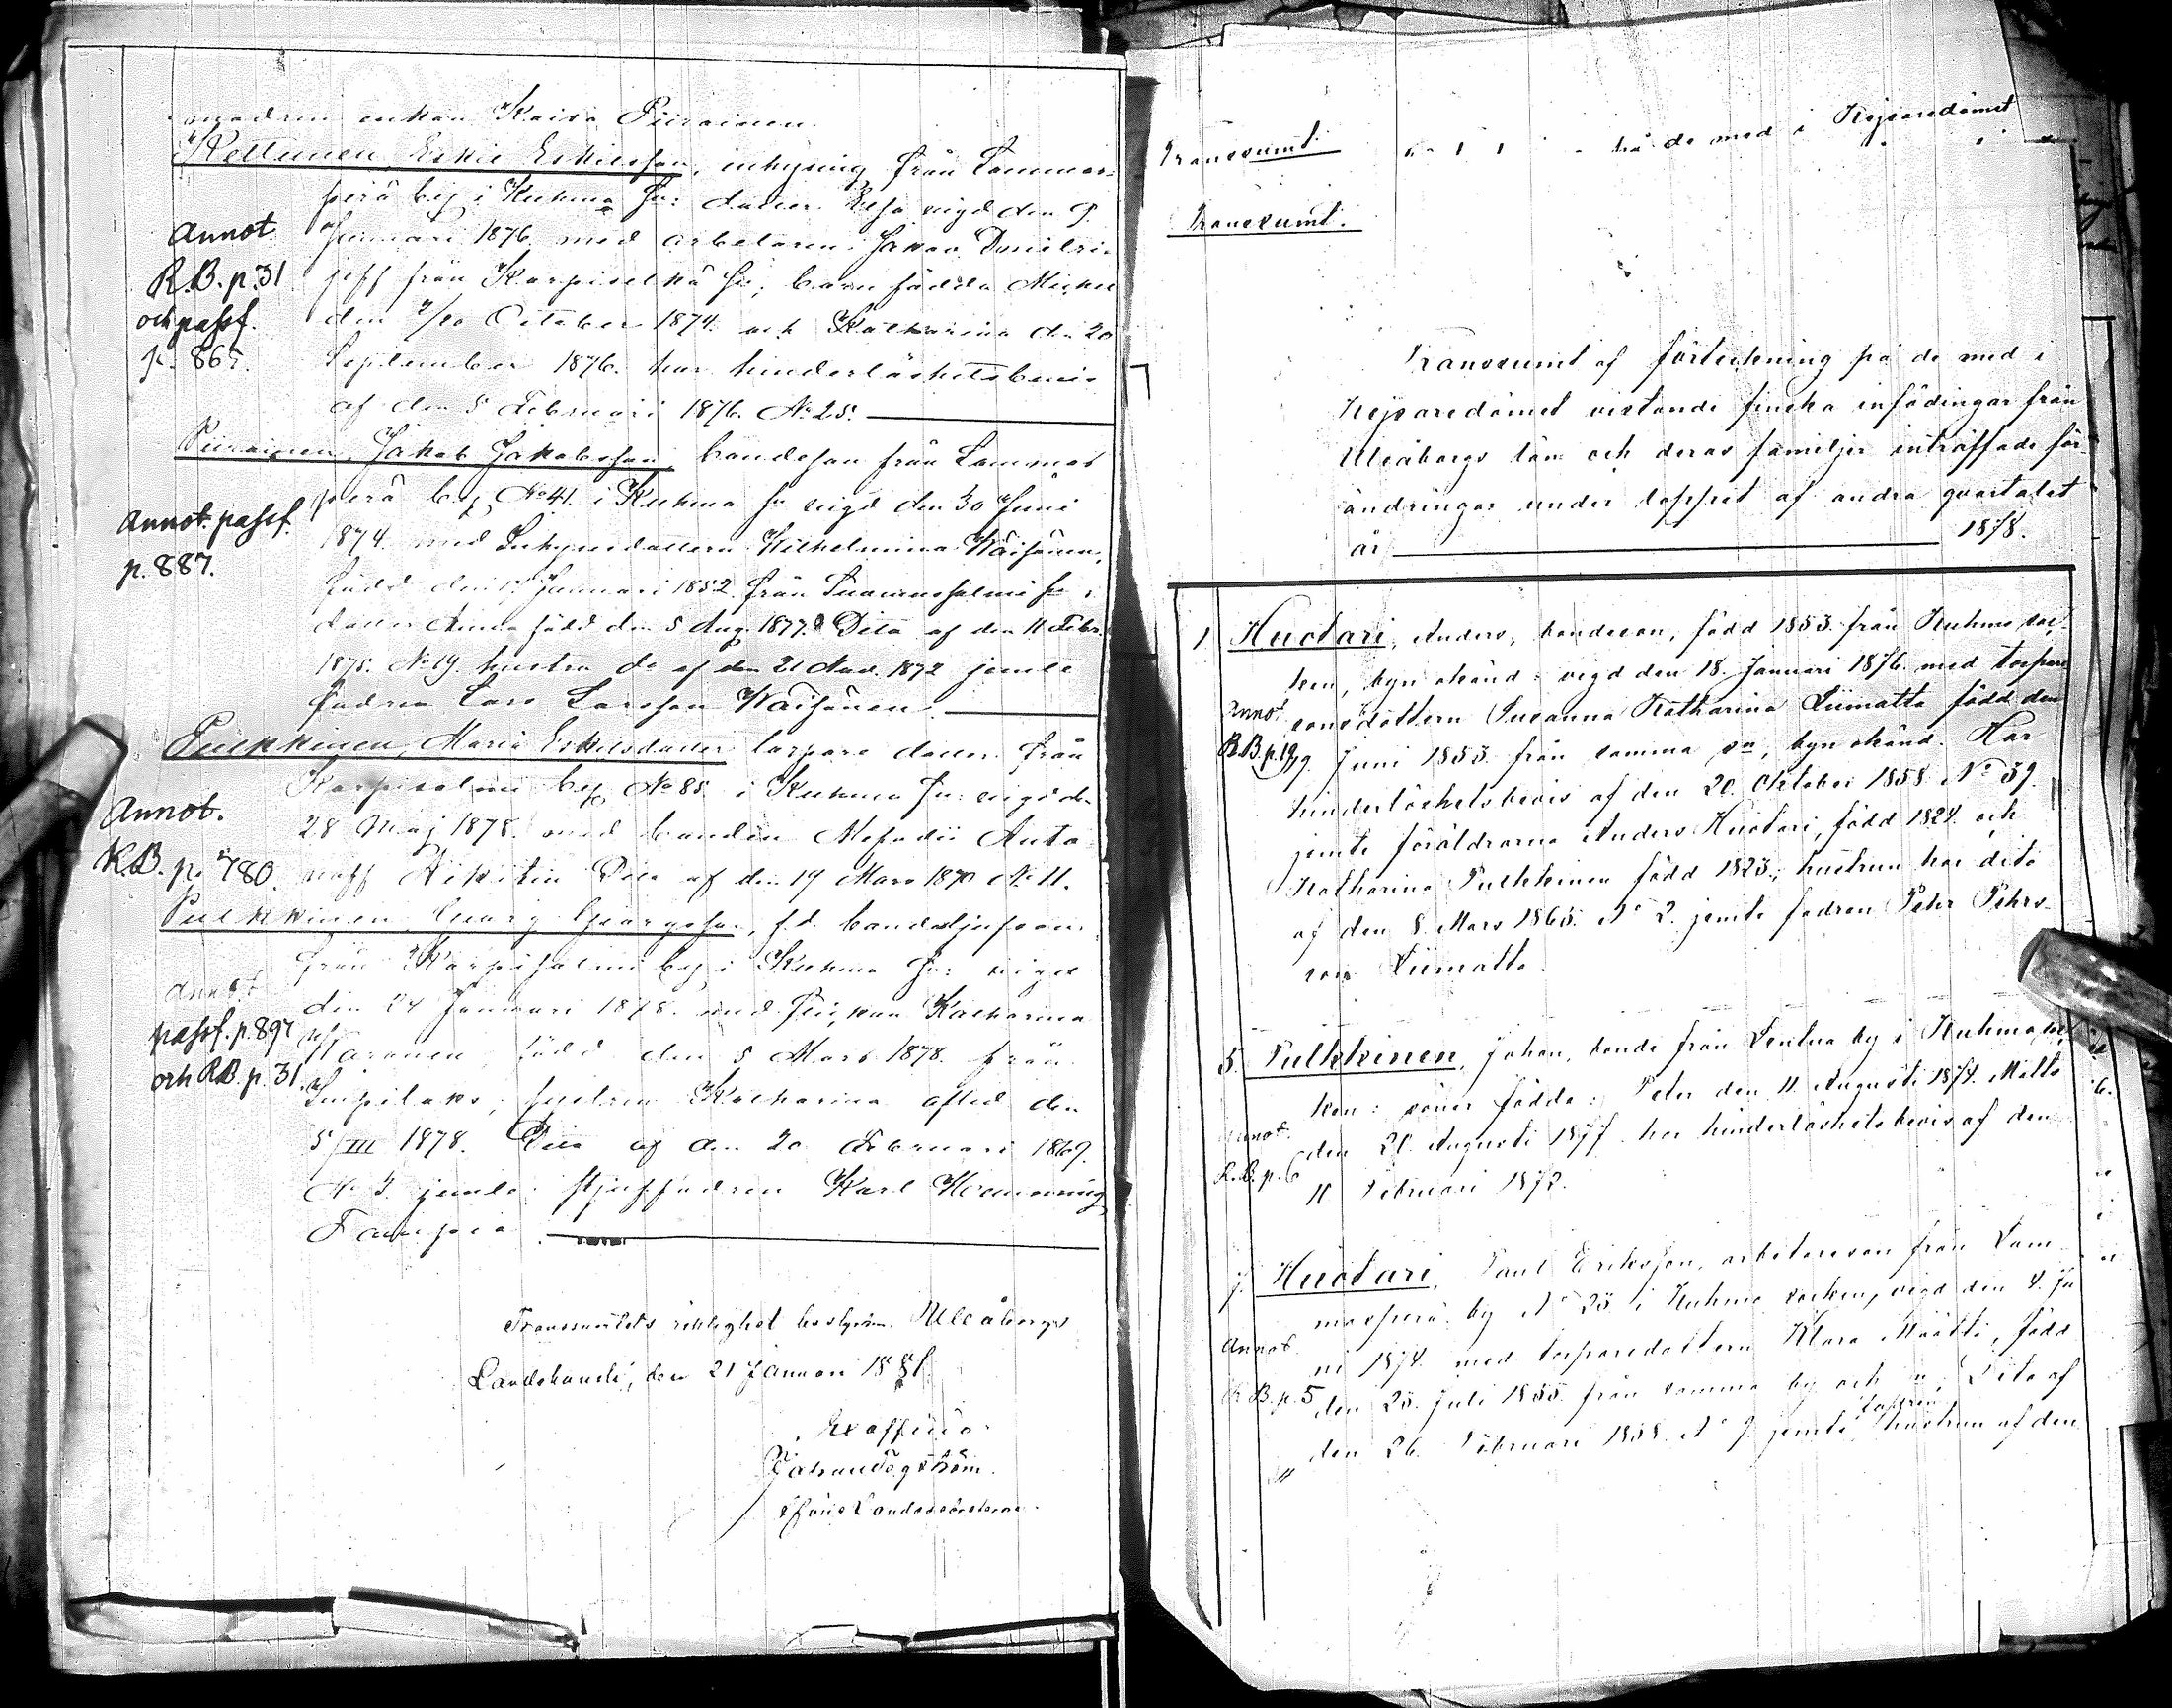 modren enkan Kaisa Piirainen
Kettunen, Eskil Eskilsson, inhysing från Lammas-
perä by i Kuhmo sn: dotter Elsa vigd den 9.
Januari 1876 med arbetaren Jakov Dmitri-
jeff från Karpiselkä sn; barn födda Michel
den /20 October 1874 och Katharina den 20
September 1876. har hinderlöshetsbevis
af den 5 Februari 1876. No 25.
Piirainen, Jakob Jakobsson, bondeson från Lammas
perä by No 41. i Kuhmo sn vigd den 30 Juni
1874 med Inhysesdottern Wilhelmina Wäisänen,
född den Januari 1852 från Suomussalmi sn;
dotter Anna född den 5 Aug. 1877. Dito af den 11 Febr.
1875. No 19. hustrun do af den 21 1872 jemte
fadren Lars Larsson Wäisänen.
Pulkkinen, Maria Eskilsdotter torpare dotter från
by No 85 i Kuhmo sn: vigd d.
28 Maj 1878. med bonden Mefodii Anto
noff Nikitin Dito af den 19 Mars 1870 No 11.
Pulkkinen Georg Georgsson, f.d. bondestjufson
från by i Kuhmo sn: vigd
den 24 Januari 1878. med Katharina
född den 5 Mars 1878. från
Impilaks; hustrun Katharina afled den
5/III 1878. Dito af den 20 Februari 1869.
No 3. jemte stjuffadren Karl Hemming
Annot
R.B. p. 31
och passf.
p. 865.
Annot. passf.
p. 887.
Annot.
K.B. p. 780.
Annot
passf. p. 897
och R.B. p. 31.
Transsumtets riktighet bestyrker. Uleåborgs
Landskansli, den 21 Januari 1881.
Ex officio
Transsumt på de med i Kejsaredömet
Transsumt.
Transsumt af förteckning på de med i
Kejsaredömet vistande finska infödingar från
Uleåborgs län och deras familjer inträffade för-
ändringar under loppet af andra qvartalet
år 1878.
1 Huotari, Anders, bondeson, född 1853 från Kuhmo soc-
ken, byn okänd: vigd den 18. Januari 1876. med torpare
sonsdottern Susanna Katharina Liimatta född den
19. Juni 1853 från samma sn, byn okänd. Har
hinderlöshetsbevis af den 20. Oktober 1858 No 59.
jemte föräldrarna Anders Huotari, född 1824 och
Katharina Pulkkinen född 1823; hustrun har dito
af den 8. Mars 1865. No 2. jemte fadren Petr Pehrs-
son Liimatta.
Annot
R.B. p. 19
5. Pulkkinen, Johan, bonde från Lentua by i Kuhmo soc
ken: söner födde: Peter den 11 Augusti 1874. Matts
den 21. Augusti 1877 har hinderlöshetsbevis af den
11 Februari 1872.
Annot.
R.B. p. 6
7. Huotari, Paul Eriksson, arbetareson från Lam
masperä by No 25 i Kuhmo socken, vigd den 4. Ju
ni 1874 med torparedottern Klara Määttä, född
den 25. Juli 1855 från samma by och sn; Dito af
den 26. Februari 1858 No 9 jemte fadren hustrun af den
Annot
R.B. p. 5